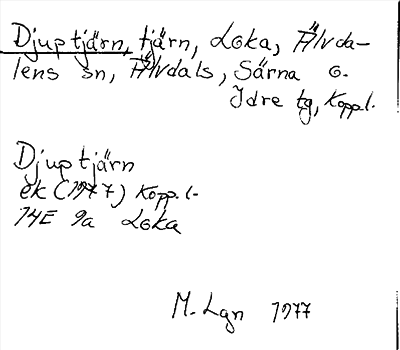 Djuptjärn, tjärn, Loka, Älvda-
lens sn, Älvdals, Särna o.
Idre tg, Kopp.l.
Djuptjärn
ek (1977) Kopp.l.
14E 9a Loka
M. Lgn 1977